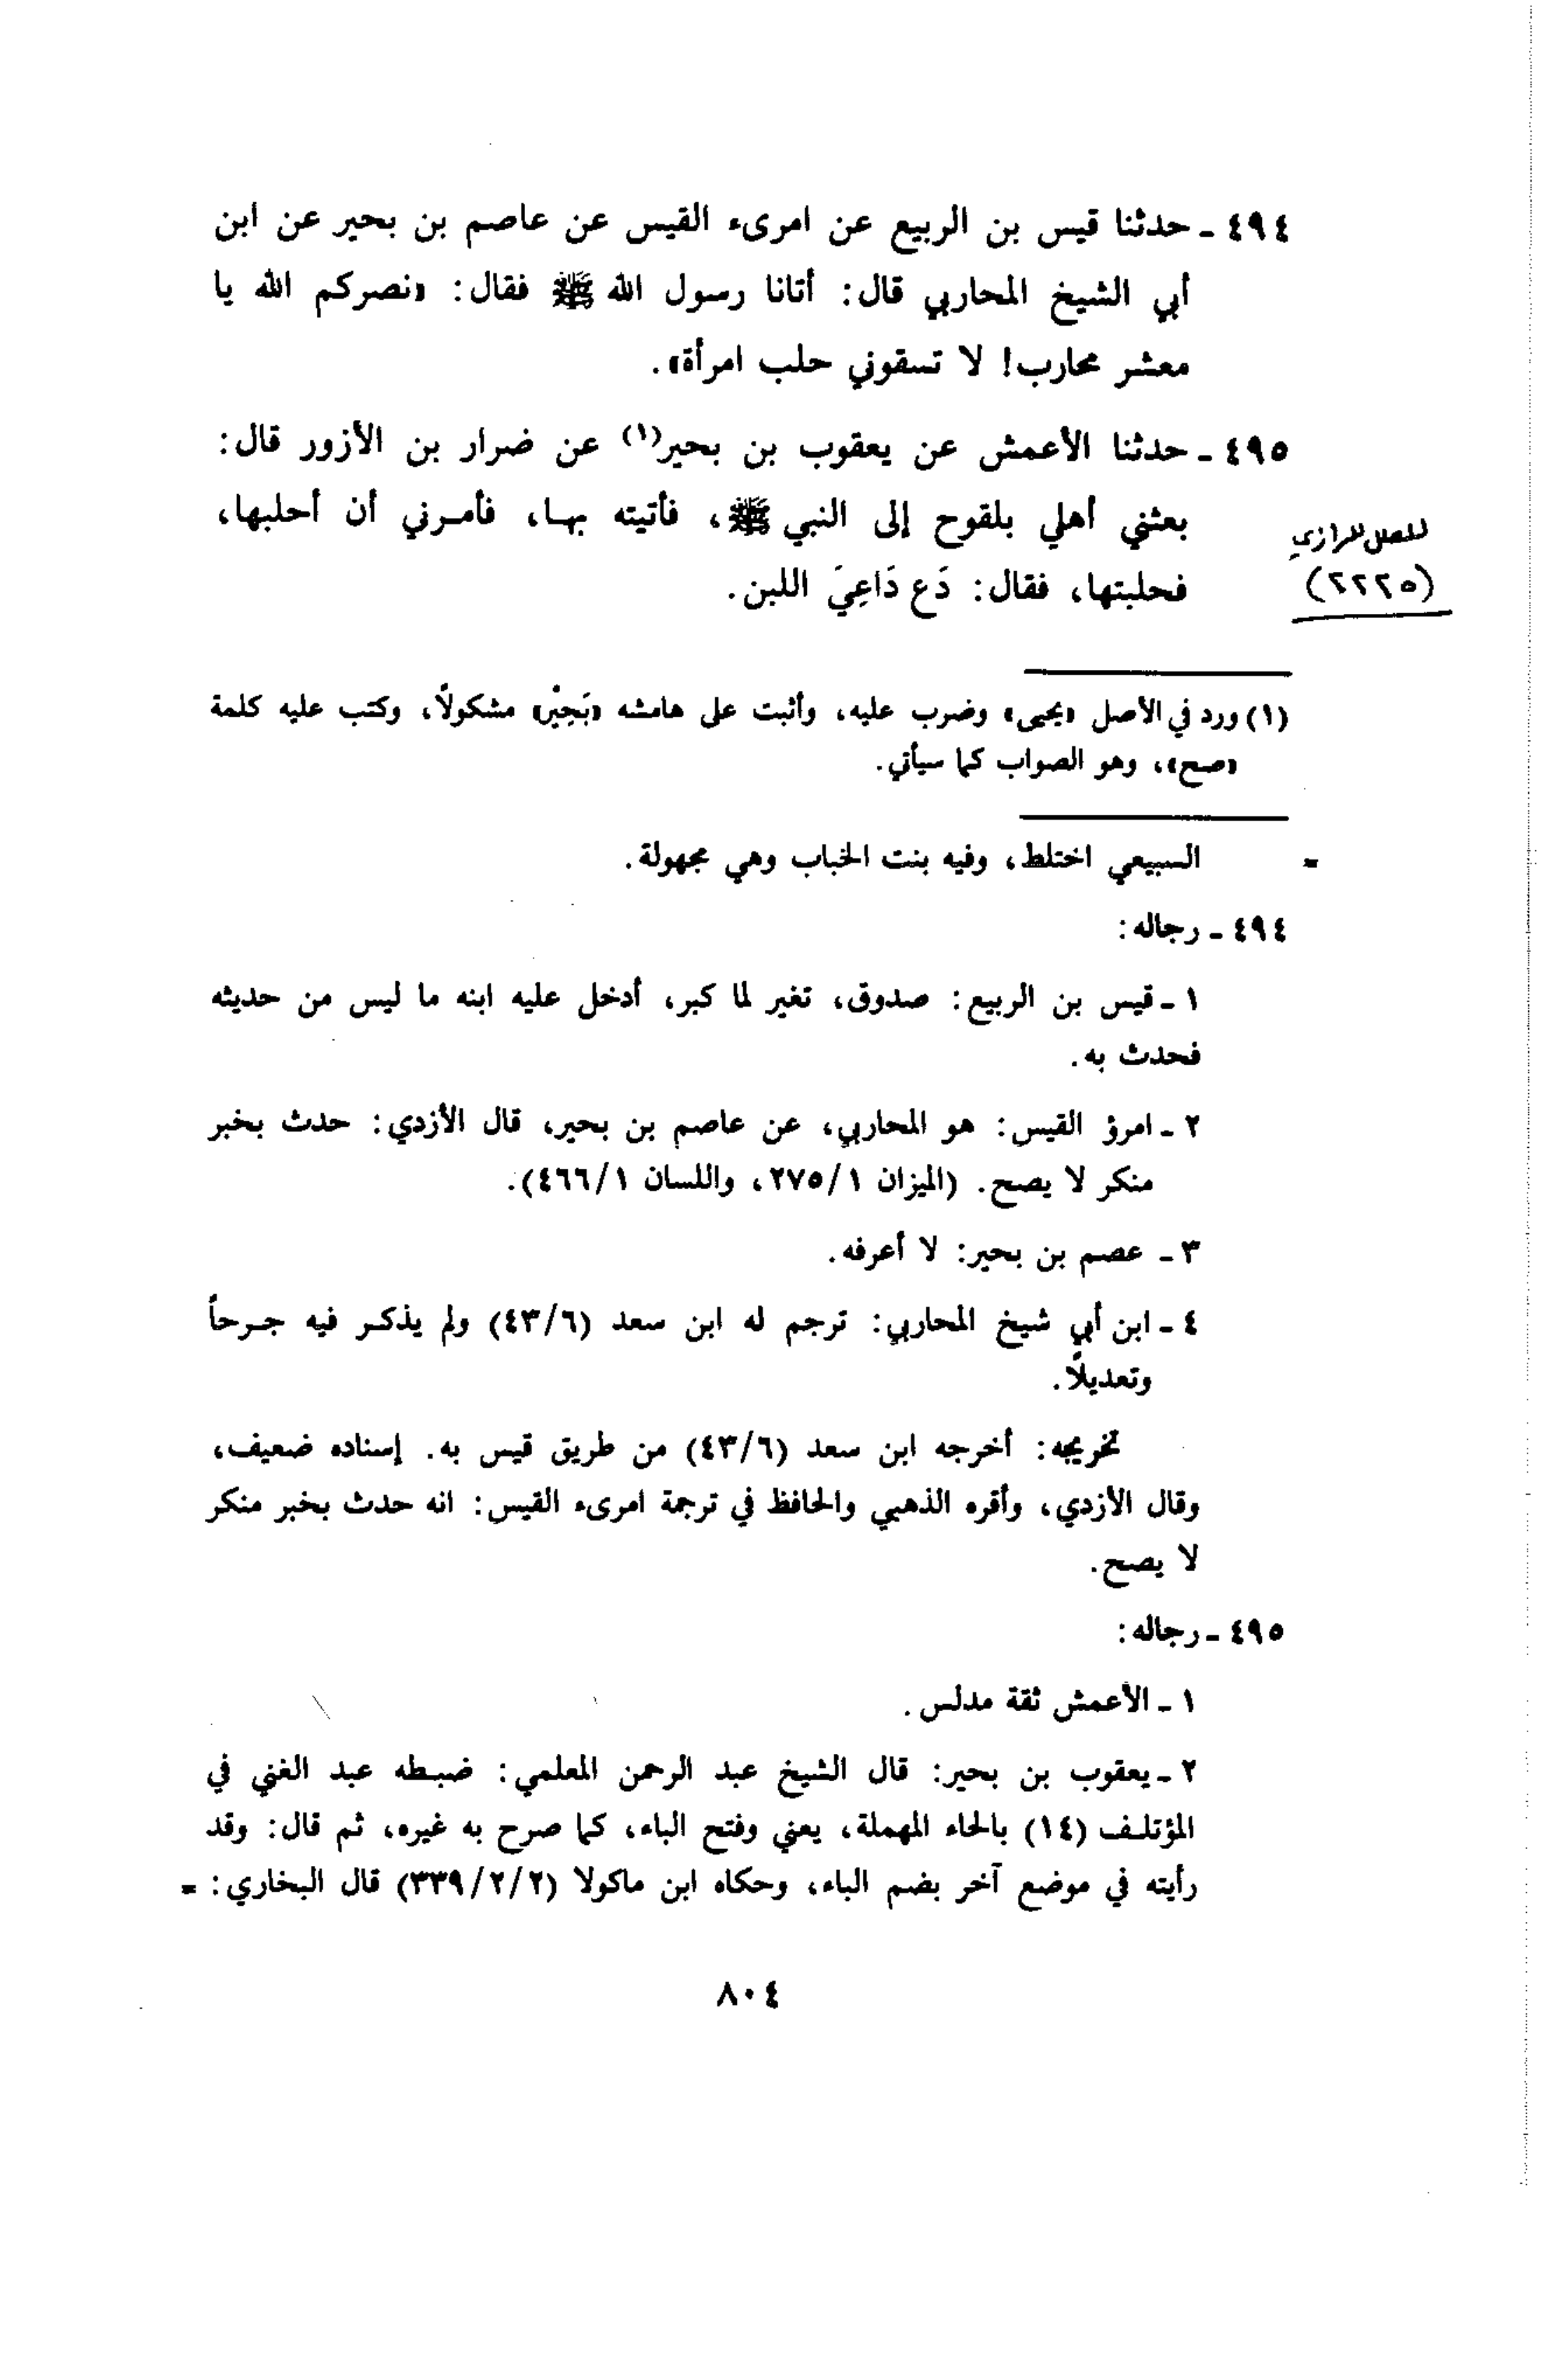 ٤٩٤ ـ حدثنا قيس بن الربيع عن امرىء القيس عن عاصم بن بحير عن ابن
أبي الشيخ المحاربي قال: أتانا رسول الله ﷺ فقال: «نصركم الله يا
معشر محارب! لا تسقوني حلب امرأة».
٤٩٥ ـ حدثنا الأعمش عن يعقوب بن بحير(١) عن ضرار بن الأزور قال:
بعثني أهلي بلقوح إلى النبي ﷺ، فأتيته بهـا، فأمـرني أن أحلبها،
للعلل للرازي
(٢٢٢٥)
فحلبتها، فقال: دَع دَاعِيَ اللبن.
(١) ورد في الأصل «يحيى» وضرب عليه، وأثبت على هامشه «بَحِيْر» مشكولاً، وكتب عليه كلمة
«صح»، وهو الصواب كما سيأتي.
= السبيعي اختلط، وفيه بنت الخباب وهي مجهولة.
٤٩٤ ـ رجاله:
١ ـ قيس بن الربيع: صدوق، تغير لما كبر، أدخل عليه ابنه ما ليس من حديثه
فحدث به.
٢ ـ امرؤ القيس: هو المحاربي، عن عاصم بن بحير، قال الأزدي: حدث بخبر
منكر لا يصح. (الميزان ٢٧٥/١، واللسان ٤٦٦/١).
٣ ـ عصم بن بحير: لا أعرفه.
٤ ـ ابن أبي شيخ المحاربي: ترجم له ابن سعد (٤٣/٦) ولم يذكـر فيه جـرحاً
وتعديلاً.
تخريجه: أخرجه ابن سعد (٤٣/٦) من طريق قيس به. إسناده ضعيف،
وقال الأزدي، وأقره الذهبي والحافظ في ترجمة امرىء القيس: انه حدث بخبر منكر
لا يصح.
٤٩٥ ـ رجاله:
١ ـ الأعمش ثقة مدلس.
٢ ـ يعقوب بن بحير: قال الشيخ عبد الرحمن المعلمي: ضبطه عبد الغني في
المؤتلـف (١٤) بالحاء المهملة، يعني وفتح الباء، كما صرح به غيره، ثم قال: وقد
رأيته في موضع آخر بضم الباء، وحكاه ابن ماكولا (٣٣٩/٢/٢) قال البخاري: =
٨٠٤